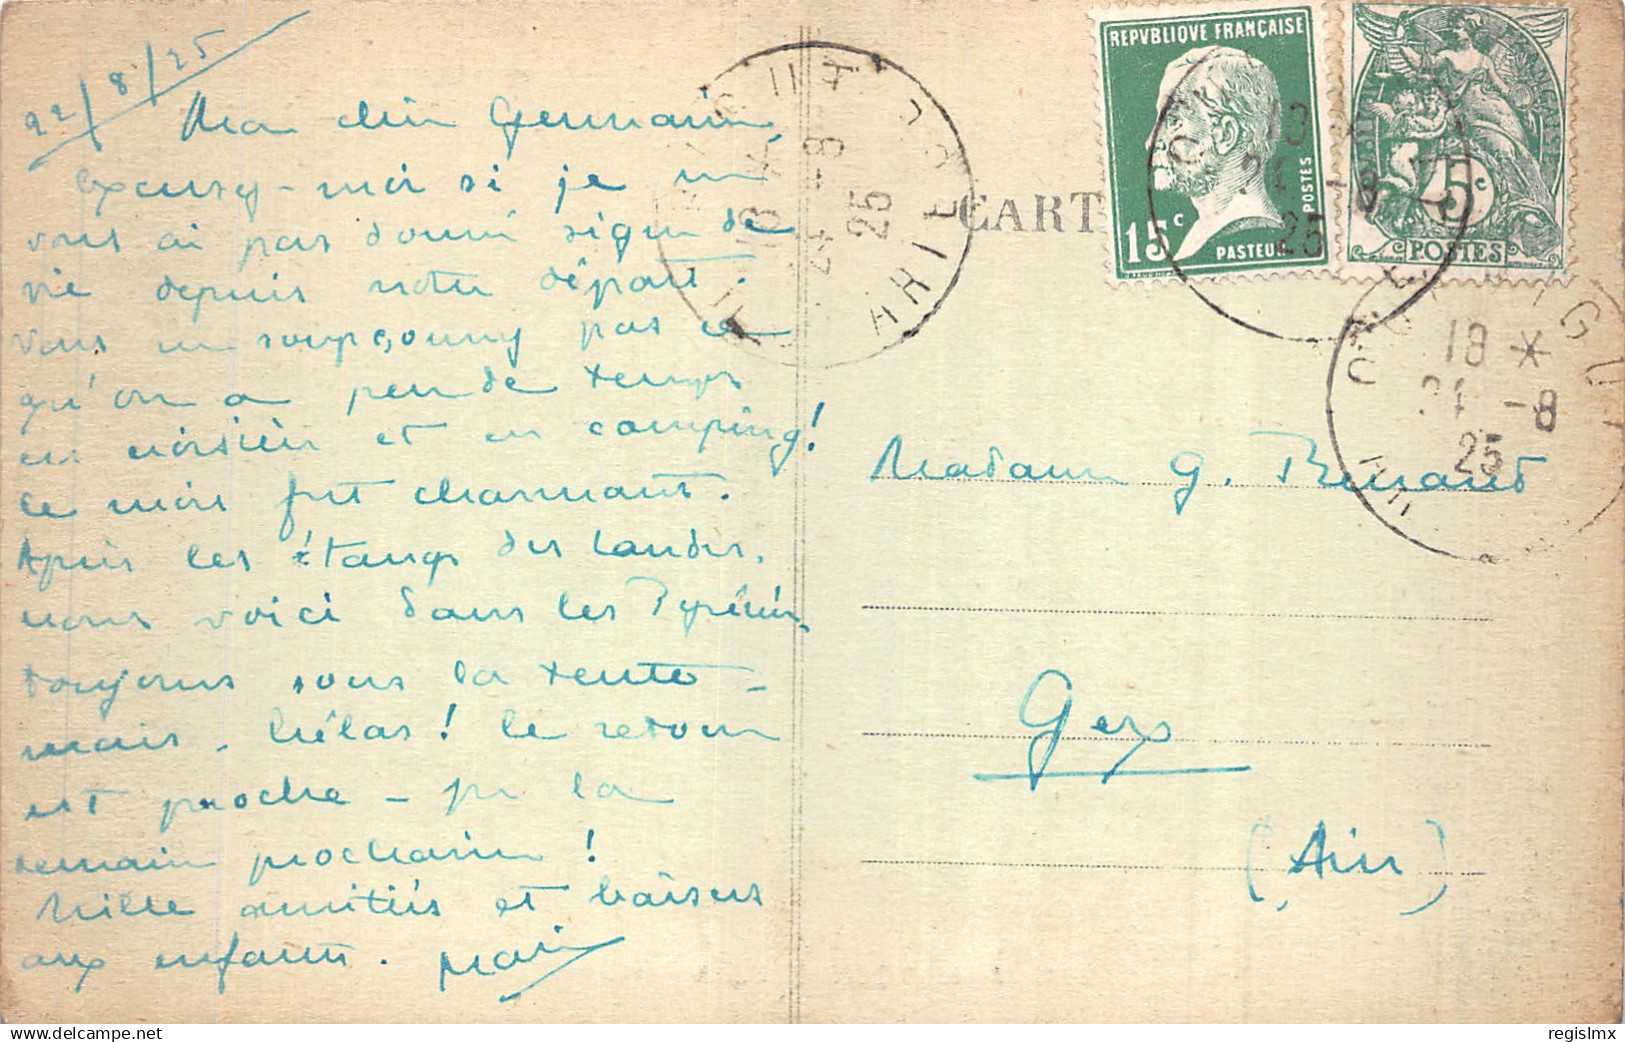 22/8/25
Ma chère Germaine,
Excusez-moi si je ne
vous ai pas donné signe de
vie depuis notre départ.
Vous ne soupçonnez pas ce
qu'on a peu de temps
en croisière et en camping!
Ce mois fut charmant.
Après les étangs des Landes,
nous voici dans les Pyrénées
toujours sous la tente -
mais, hélas! le retour
est proche - fin la
semaine prochaine!
Mille amitiés et baisers
aux enfants. Marie
CART
REPVBLIQVE FRANÇAISE
15c
PASTEUR
POSTES
5c
POSTES
18 *
24 -8
25
ARIE
Madame G. Renaud
Gex
(Ain)
delcampe.net
regislmx